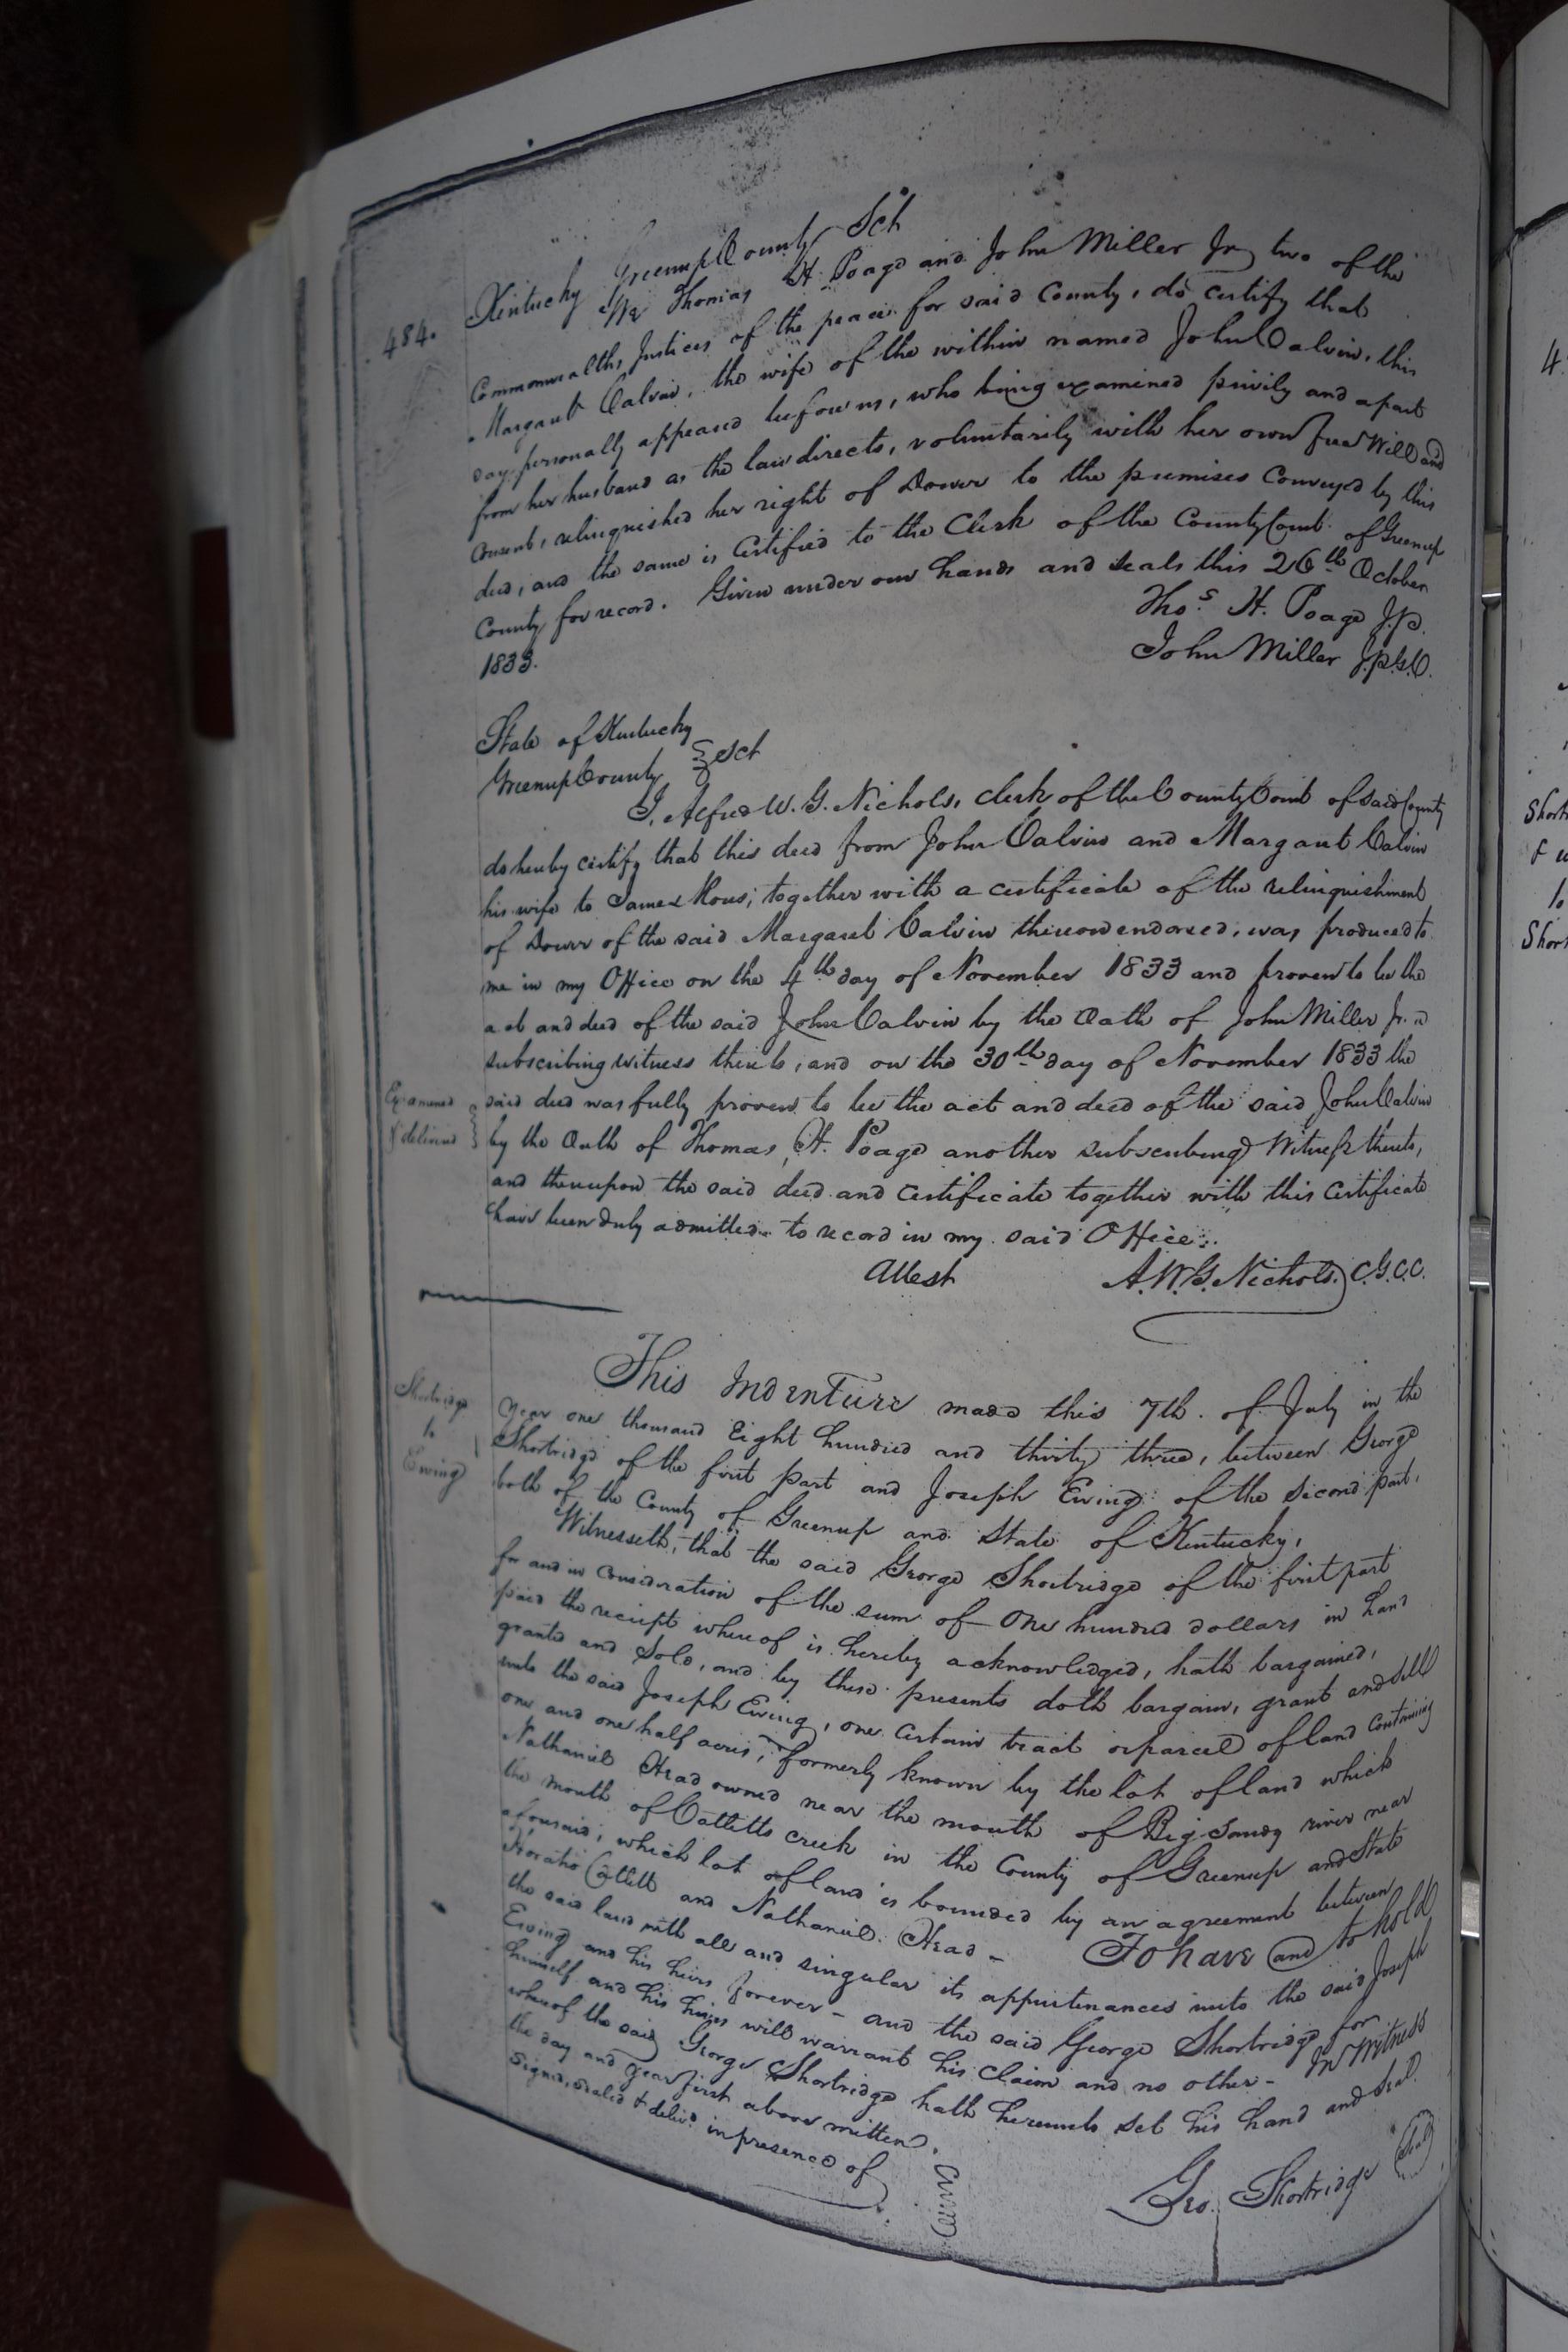 484.
Kentucky Greenup County Sct
We Thomas H. Poage and John Miller Jr two of the
Commonwealths Justices of the peace for said County, do certify that
Margaret Calvin, the wife of the within named John Calvin, this
day personally appeared before us, who being examined privily and apart
from her husband as the law directs, voluntarily with her own free Will and
Consent, relinquished her right of Dower to the premises Conveyed by this
deed, and the same is Certified to the Clerk of the County Court of Greenup
County for record. Given under our hands and seals this 26th October
1833.
Thos. H. Poage J.P.
John Miller J.P.G.C.
State of Kentucky
Greenup County } Sct
I, Alfred W. G. Nichols, clerk of the County Court of said County
do hereby certify that this deed from John Calvin and Margaret Calvin
his wife to James; together with a certificate of the relinquishment
of Dower of the said Margaret Calvin thereon endorsed, was produced to
me in my Office on the 4th day of November 1833 and proven to be the
act and deed of the said John Calvin by the Oath of John Miller Jr. a
subscribing witness thereto, and on the 30th day of November 1833 the
Examined
& delivered
said deed was fully proven to be the act and deed of the said John Calvin
by the Oath of Thomas H. Poage another subscribing Witness thereto,
and thereupon the said deed and certificate together with this Certificate
have been duly admitted to record in my said Office.
Attest A. W. G. Nichols C.G.C.C.
Shortridge
to
Ewing
This Indenture made this 7th. of July in the
year one thousand Eight hundred and thirty three, between George
Shortridge of the first part and Joseph Ewing of the second part,
both of the County of Greenup and State of Kentucky,
Witnesseth, that the said George Shortridge of the first part
for and in Consideration of the sum of One hundred dollars in hand
paid the receipt whereof is hereby acknowledged, hath bargained,
granted and Sold, and by these presents doth bargain, grant and sell
unto the said Joseph Ewing, one Certain tract or parcel of land Containing
one and one half acres, formerly known by the lot of land which
Nathaniel Head owned near the mouth of Big Sandy river near
the mouth of Catletts creek in the County of Greenup and State
aforesaid, which lot of land is bounded by an agreement between
Horatio Catlett and Nathaniel Head - To have and to hold
the said land with all and singular its appurtenances unto the said Joseph
Ewing and his heirs forever - and the said George Shortridge for
himself and his heirs will warrant his Claim and no other - In Witness
whereof the said George Shortridge hath hereunto set his hand and seal
the day and year first above written.
Signed, sealed & delivd. in presence of
Geo. Shortridge (Seal)
4.
Short
to
Short